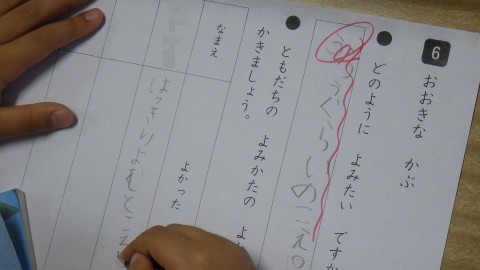 6 おおきな かぶ
● どのように よみたい ですか
ぐらいのこえ。
● ともだちの よみかたの よ
かきましょう。
なまえ
よかった
はっきりよむところ